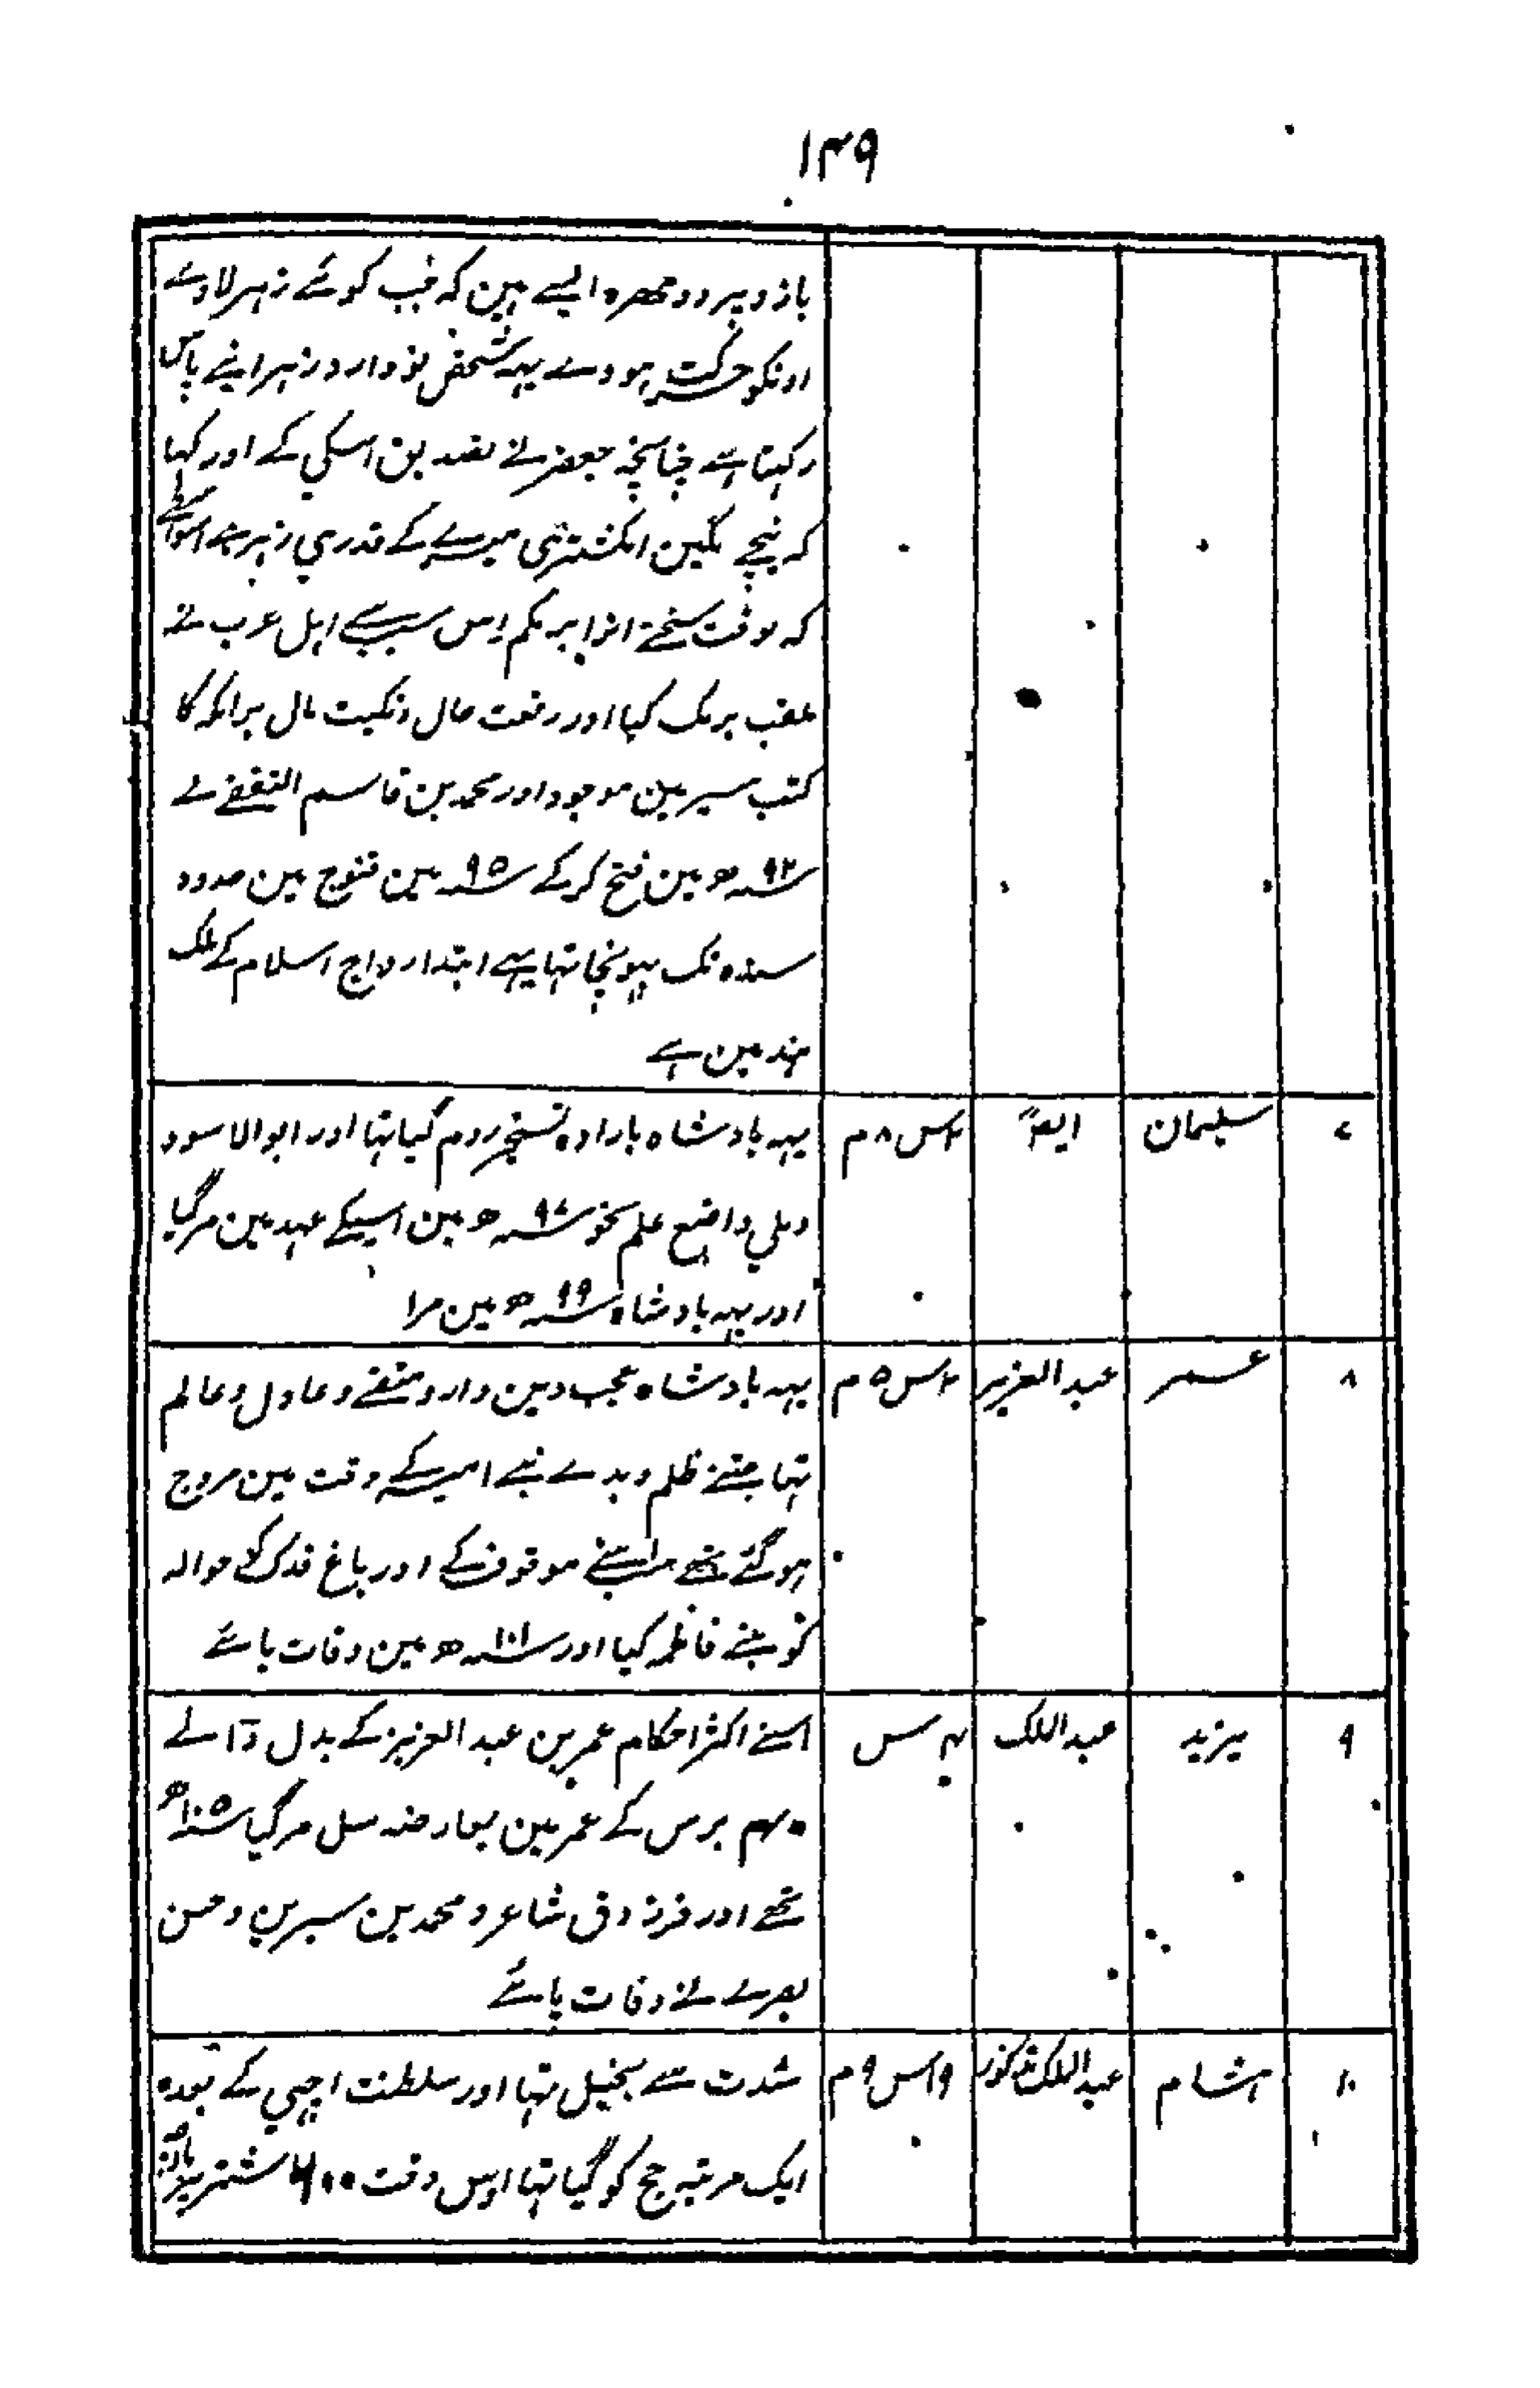 ۱۴۹
بازو پر دو مهره ایسے ہین کہ جب کوئے زہر لاوے
اونکو حرکت ہووے یہہ شخص نو وارد زہر اپنے پاس
رکہتا ہے چنانچہ جعفر نے تصدیق اسکی کے اور کہا
کہ نیچے نگین انگشتری میرے کے قدری زہر ہے
کہ بوقت سختے انرا بر مکم اِس سبب سے اہل عرب نے
لقب برمک کیا اور رفعت حال و نکبت مال برامکہ کا
کتب سیر مین موجود اور محمد بن قاسم الثقفے نے
سنہ ۹۲ ھ مین فتح کر کے سنہ ۹۵ مین قنوج مین حدود
سندہ تک پہونچا تہا یہے ابتدا رواج اسلام کے ملک
ہند مین ہے
۷ سلیمان ایضاً ۲س ۸م یہہ بادشاہ بارادہ تسخیر روم گیا تہا اور ابوالاسود
دیلی واضع علم نحو سنہ ۹۷ ھ مین اسیکے عہد مین مر گیا
اور یہہ بادشاہ سنہ ۹۹ ھ مین مرا
۸ عمر عبد العزیز ۲س ۵م یہہ بادشاہ عجب دین دار و متقے و عادل و عالم
تہا جتنے ظلم و بدے بنے امیہ کے وقت مین مروج
ہو گئے تہے اسنے موقوف کے اور باغ فدک کے حوالہ
کو بنے فاطمہ کیا اور سنہ ۱۰۱ ھ مین وفات پائے
۹ یزید عبد الملک ۴ س اسنے اکثر احکام عمر بن عبد العزیز کے بدل ڈالے
۴۰ برس کے عمر مین بعارضہ سل مر گیا سنہ ۱۰۵ ھ
تہے اور فرزدق شاعر و محمد بن سیرین و حسن
بصرے نے وفات پائے
۱۰ ہشام عبد الملک مذکور ۱۹س ۹م شدت سے بخیل تہا اور سلطنت اچہی کے
ایک مرتبہ حج کو گیا تہا اوس وقت ۶۰۰ شتر پر